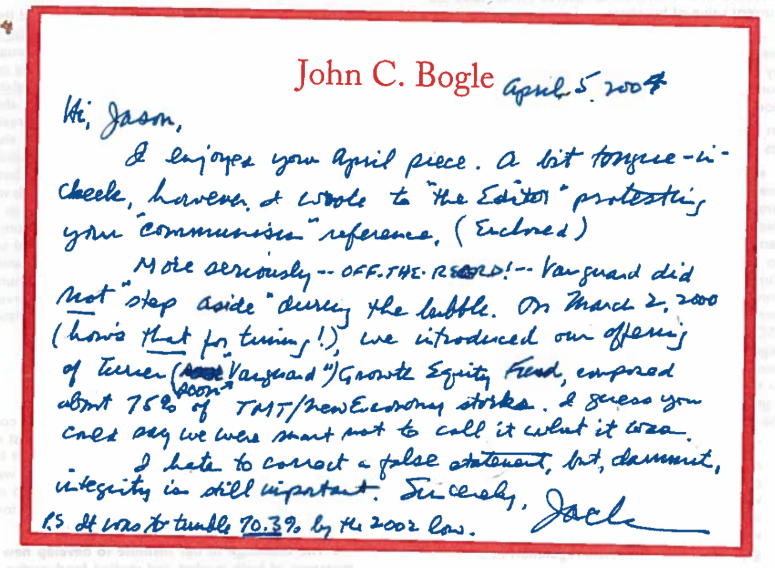 John C. Bogle April 5, 2004
Hi, Jason,
I enjoyed your April piece. A bit tongue-in-
cheek, however, I wrote to "the Editor" protesting
your "communism" reference. (Enclosed)
More seriously -- OFF-THE-RECORD! -- Vanguard did
not "step aside" during the bubble. On March 2, 2000
(how's that for timing!), we introduced our offering
of Turner ("Vanguard") Growth Equity Fund, composed
soon
about 75% of TMT/New Economy stocks. I guess you
could say we were smart not to call it what it was.
I hate to correct a false statement, but, dammit,
integrity is still important. Sincerely,
Jack
P.S It was to tumble 70.3% by the 2002 low.